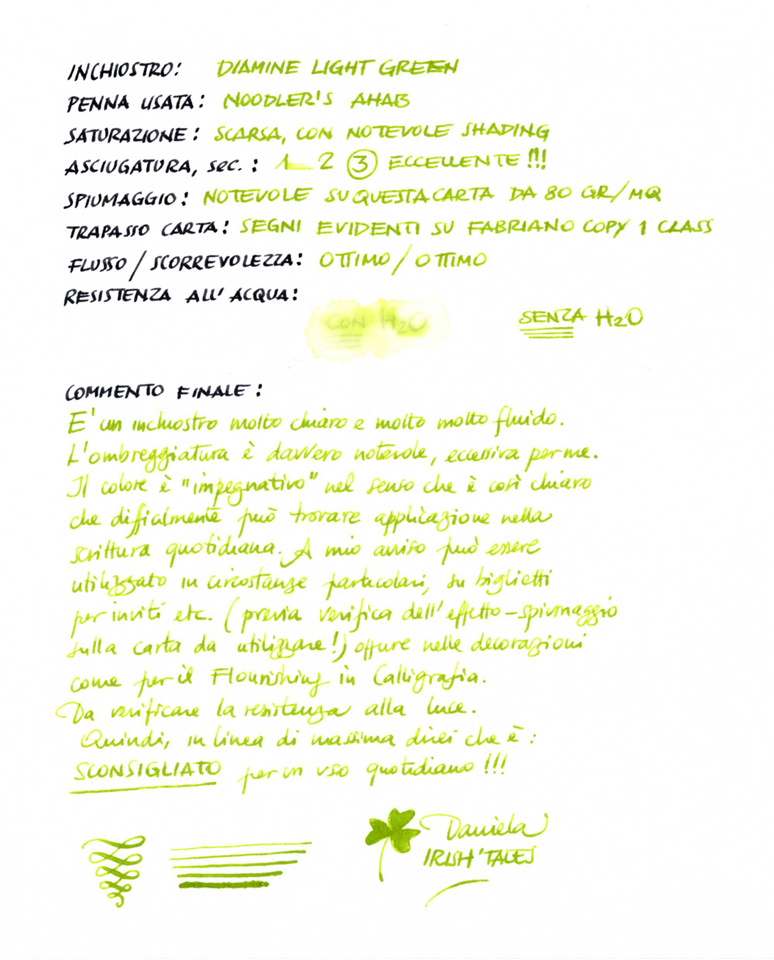 INCHIOSTRO: DIAMINE LIGHT GREEN
PENNA USATA: NOODLER'S AHAB
SATURAZIONE: SCARSA, CON NOTEVOLE SHADING
ASCIUGATURA, sec.: 1 2 3 ECCELLENTE!!!
SPIUMAGGIO: NOTEVOLE SU QUESTA CARTA DA 80 GR/MQ
TRAPASSO CARTA: SEGNI EVIDENTI SU FABRIANO COPY 1 CLASS
FLUSSO/SCORREVOLEZZA: OTTIMO/OTTIMO
RESISTENZA ALL'ACQUA:
CON H2O SENZA H2O
COMMENTO FINALE:
E' un inchiostro molto chiaro e molto molto fluido.
L'ombreggiatura è davvero notevole, eccessiva per me.
Il colore è "impegnativo" nel senso che è così chiaro
che difficilmente può trovare applicazione nella
scrittura quotidiana. A mio avviso può essere
utilizzato in circostanze particolari, su biglietti
per inviti etc. (previa verifica dell'effetto-spiumaggio
sulla carta da utilizzare!) oppure nelle decorazioni
come per il Flourishing in Calligrafia.
Da verificare la resistenza alla luce.
Quindi, in linea di massima direi che è:
SCONSIGLIATO per un uso quotidiano!!!
Daniela
IRISH'TALES